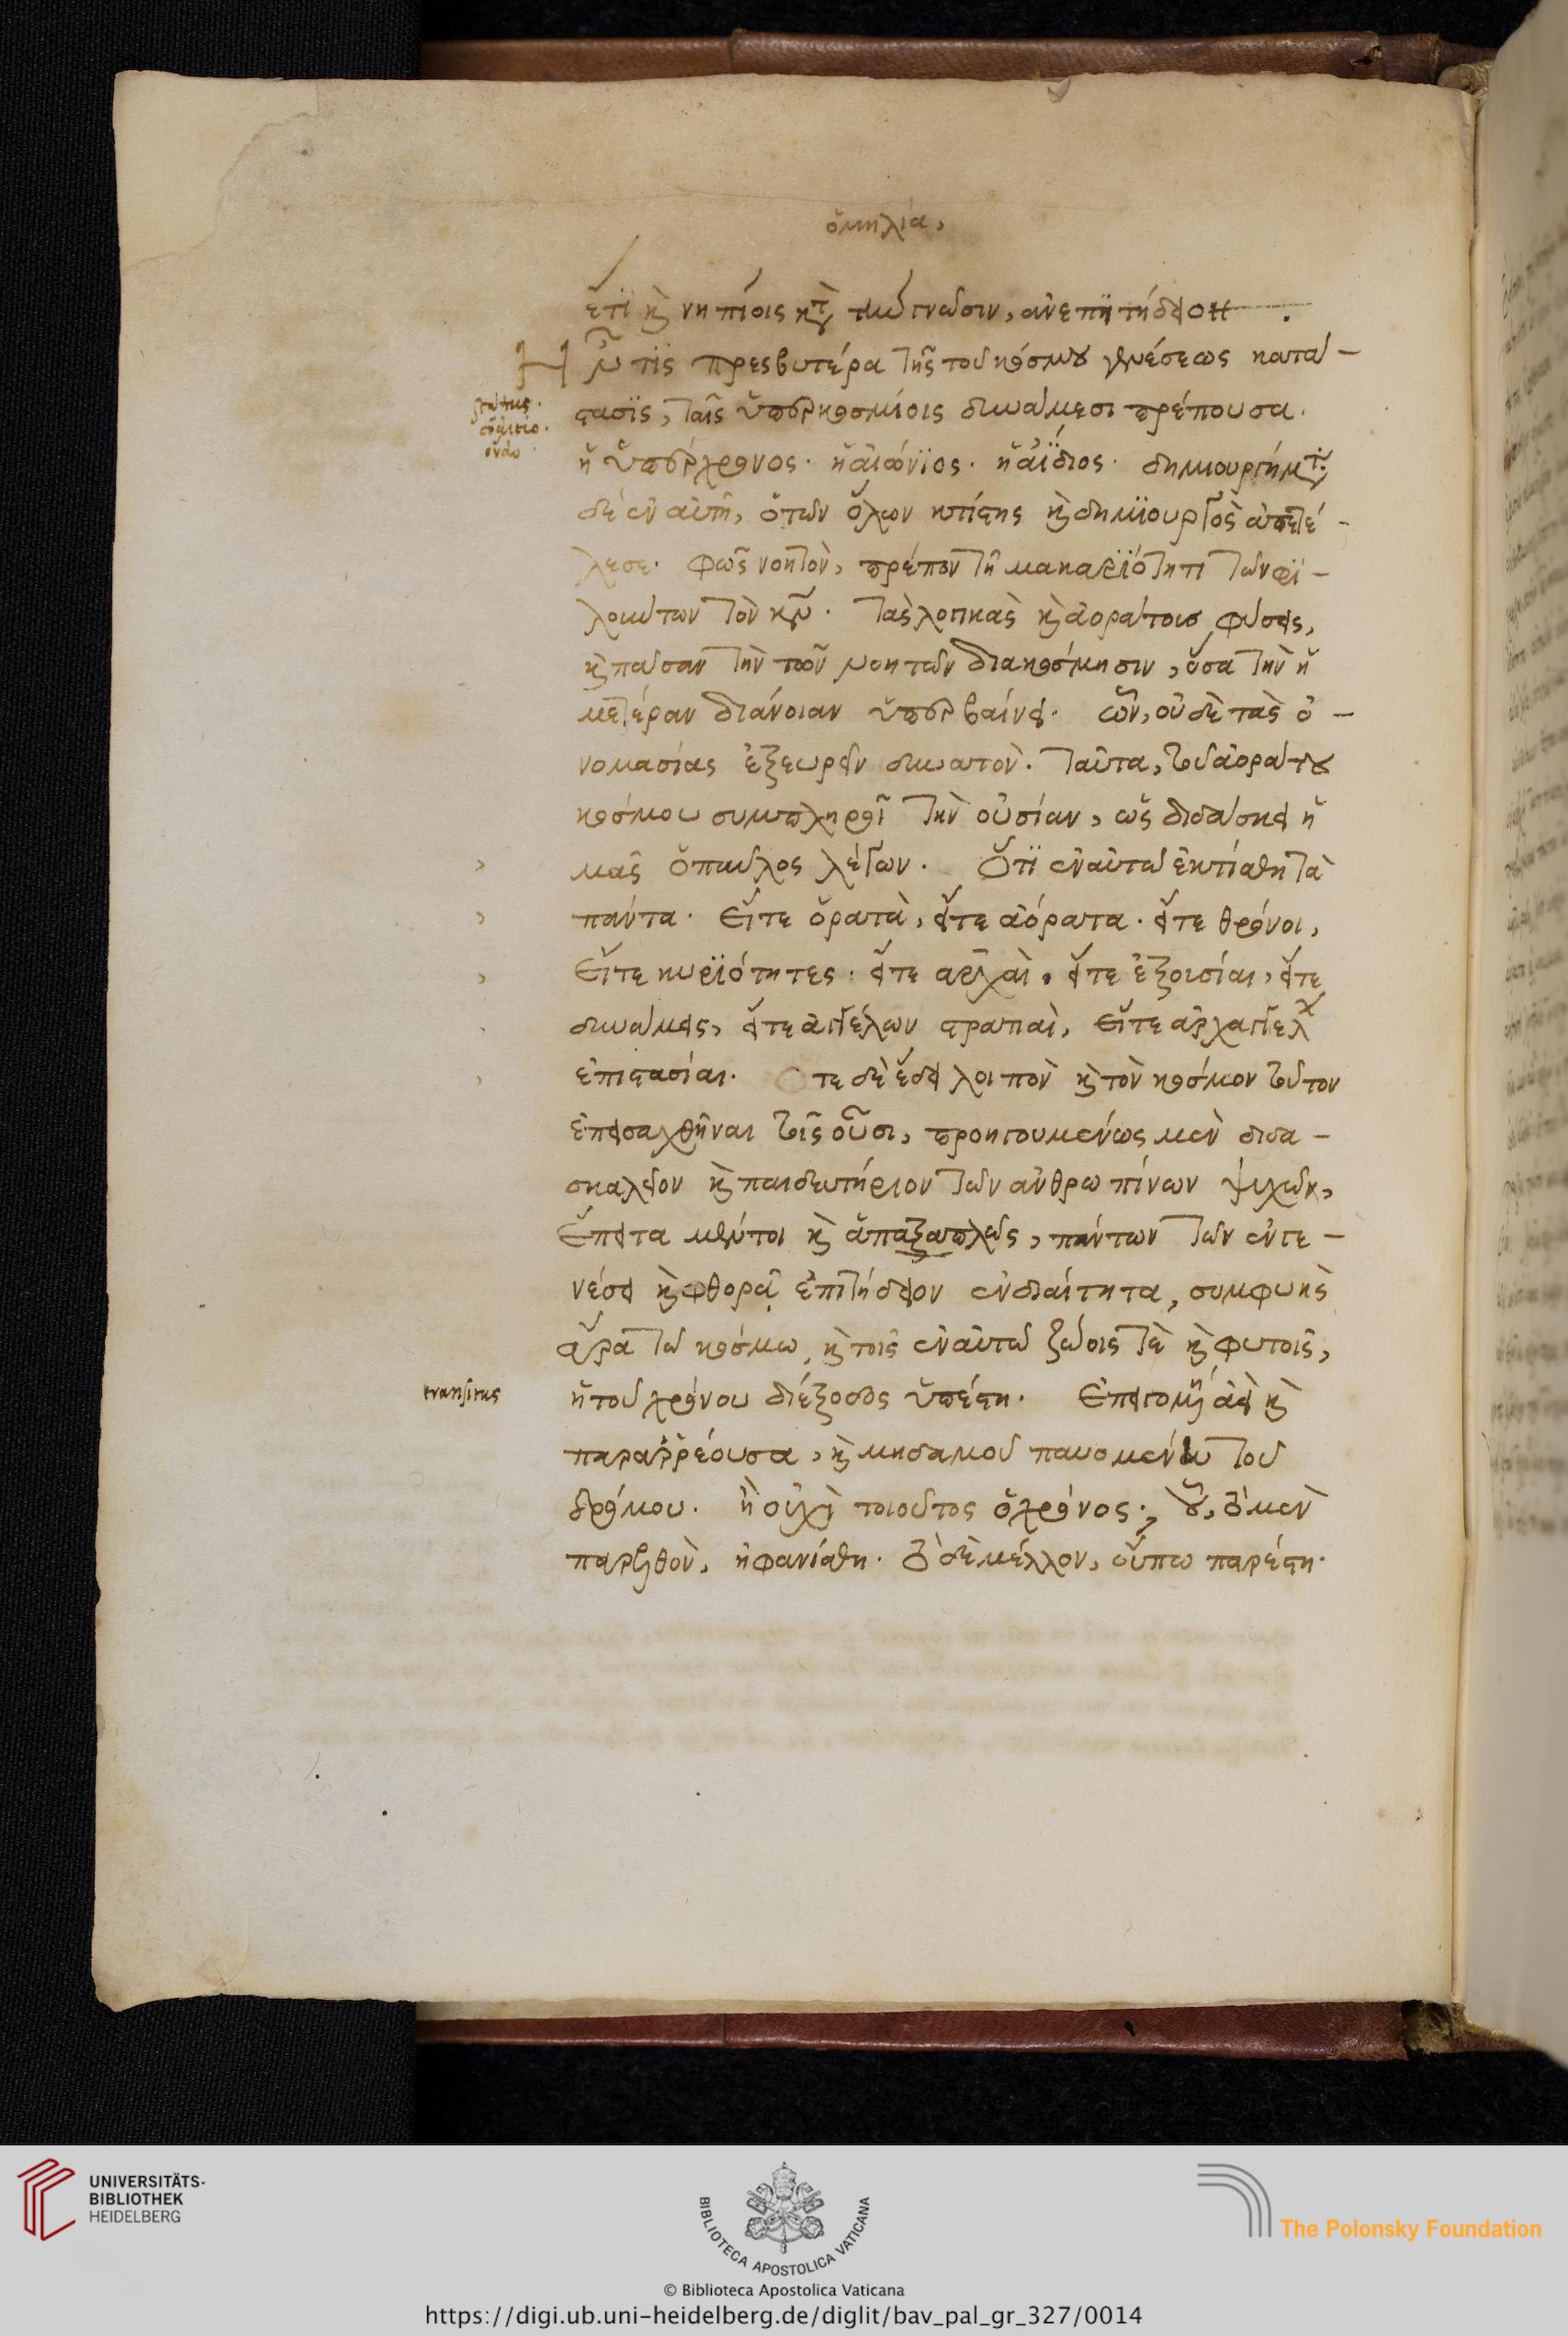 ὁμηλία,
ἔτι καὶ νηπίοις κατὰ τὴν γνῶσιν, ἀνεπιτήδειον.
Ἦν τὶς πρεσβυτέρα τῆς τοῦ κόσμου γενέσεως κατά-
στασις, ταῖς ὑπερκοσμίοις δυνάμεσι πρέπουσα.
status.
conditio.
ἡ ὑπέρχρονος. ἡ αἰώνιος. ἡ ἀΐδιος. δημιουργήματα
δὲ ἐν αὐτῇ, ὁ τῶν ὅλων κτίστης καὶ δημιουργὸς ἀπετέ-
λεσε. φῶς νοητὸν, πρέπον τῇ μακαριότητι τῶν φι-
λούντων τὸν κν. τὰς λογικὰς καὶ ἀοράτους φύσεις,
καὶ πᾶσαν τὴν τῶν νοητῶν διακόσμησιν, ὅσα τὴν ἡ
μετέραν διάνοιαν ὑπερβαίνει. ὧν, οὐδὲ τὰς ὀ-
νομασίας ἐξευρεῖν δυνατὸν. ταῦτα, τοῦ ἀοράτου
κόσμου συμπληροῖ τὴν οὐσίαν, ὡς διδάσκει ἡ
μᾶς ὁ παῦλος λέγων. Ὅτι ἐν αὐτῶ ἐκτίσθη τὰ
πάντα. Εἴτε ὁρατὰ, εἴτε ἀόρατα. εἴτε θρόνοι,
Εἴτε κυριότητες. εἴτε ἀρχαὶ. εἴτε ἐξουσίαι, εἴτε
δυνάμεις, εἴτε ἀγγέλων στραπαὶ, εἴτε ἀρχαγγέλων
ἐπιστασίαι. Ὅτε δὲ ἔδει λοιπὸν καὶ τὸν κόσμον τοῦτον
ἐπεισαχθῆναι τοῖς οὖσι, προηγουμένως μὲν διδα-
σκαλεῖον καὶ παιδευτήριον τῶν ἀνθρωπίνων ψυχῶν,
Ἔπειτα μέντοι καὶ ἁπαξαπλῶς, πάντων τῶν ἐν γε-
νέσει καὶ φθορᾷ ἐπιτήδειον ἐνδιαίτητα, συμφυὴς
ἄρα τῶ κόσμω, καὶ τοῖς ἐν αὐτῶ ζώοις τὲ καὶ φυτοῖς,
transitus
ἡ τοῦ χρόνου διέξοδος ὑπέστη. Ἐπειγομένη ἀεὶ καὶ
παραῤῥέουσα, καὶ μηδαμοῦ παυομένη τοῦ
δρόμου. ἢ οὐχὶ τοιοῦτος ὁ χρόνος; οὗ, τὸ μὲν
παρελθὸν, ἠφανίσθη. τὸ δὲ μέλλον, οὔπω παρέστη.
UNIVERSITÄTS-
BIBLIOTHEK
HEIDELBERG
BIBLIOTECA APOSTOLICA VATICANA
The Polonsky Foundation
© Biblioteca Apostolica Vaticana
https://digi.ub.uni-heidelberg.de/diglit/bav_pal_gr_327/0014